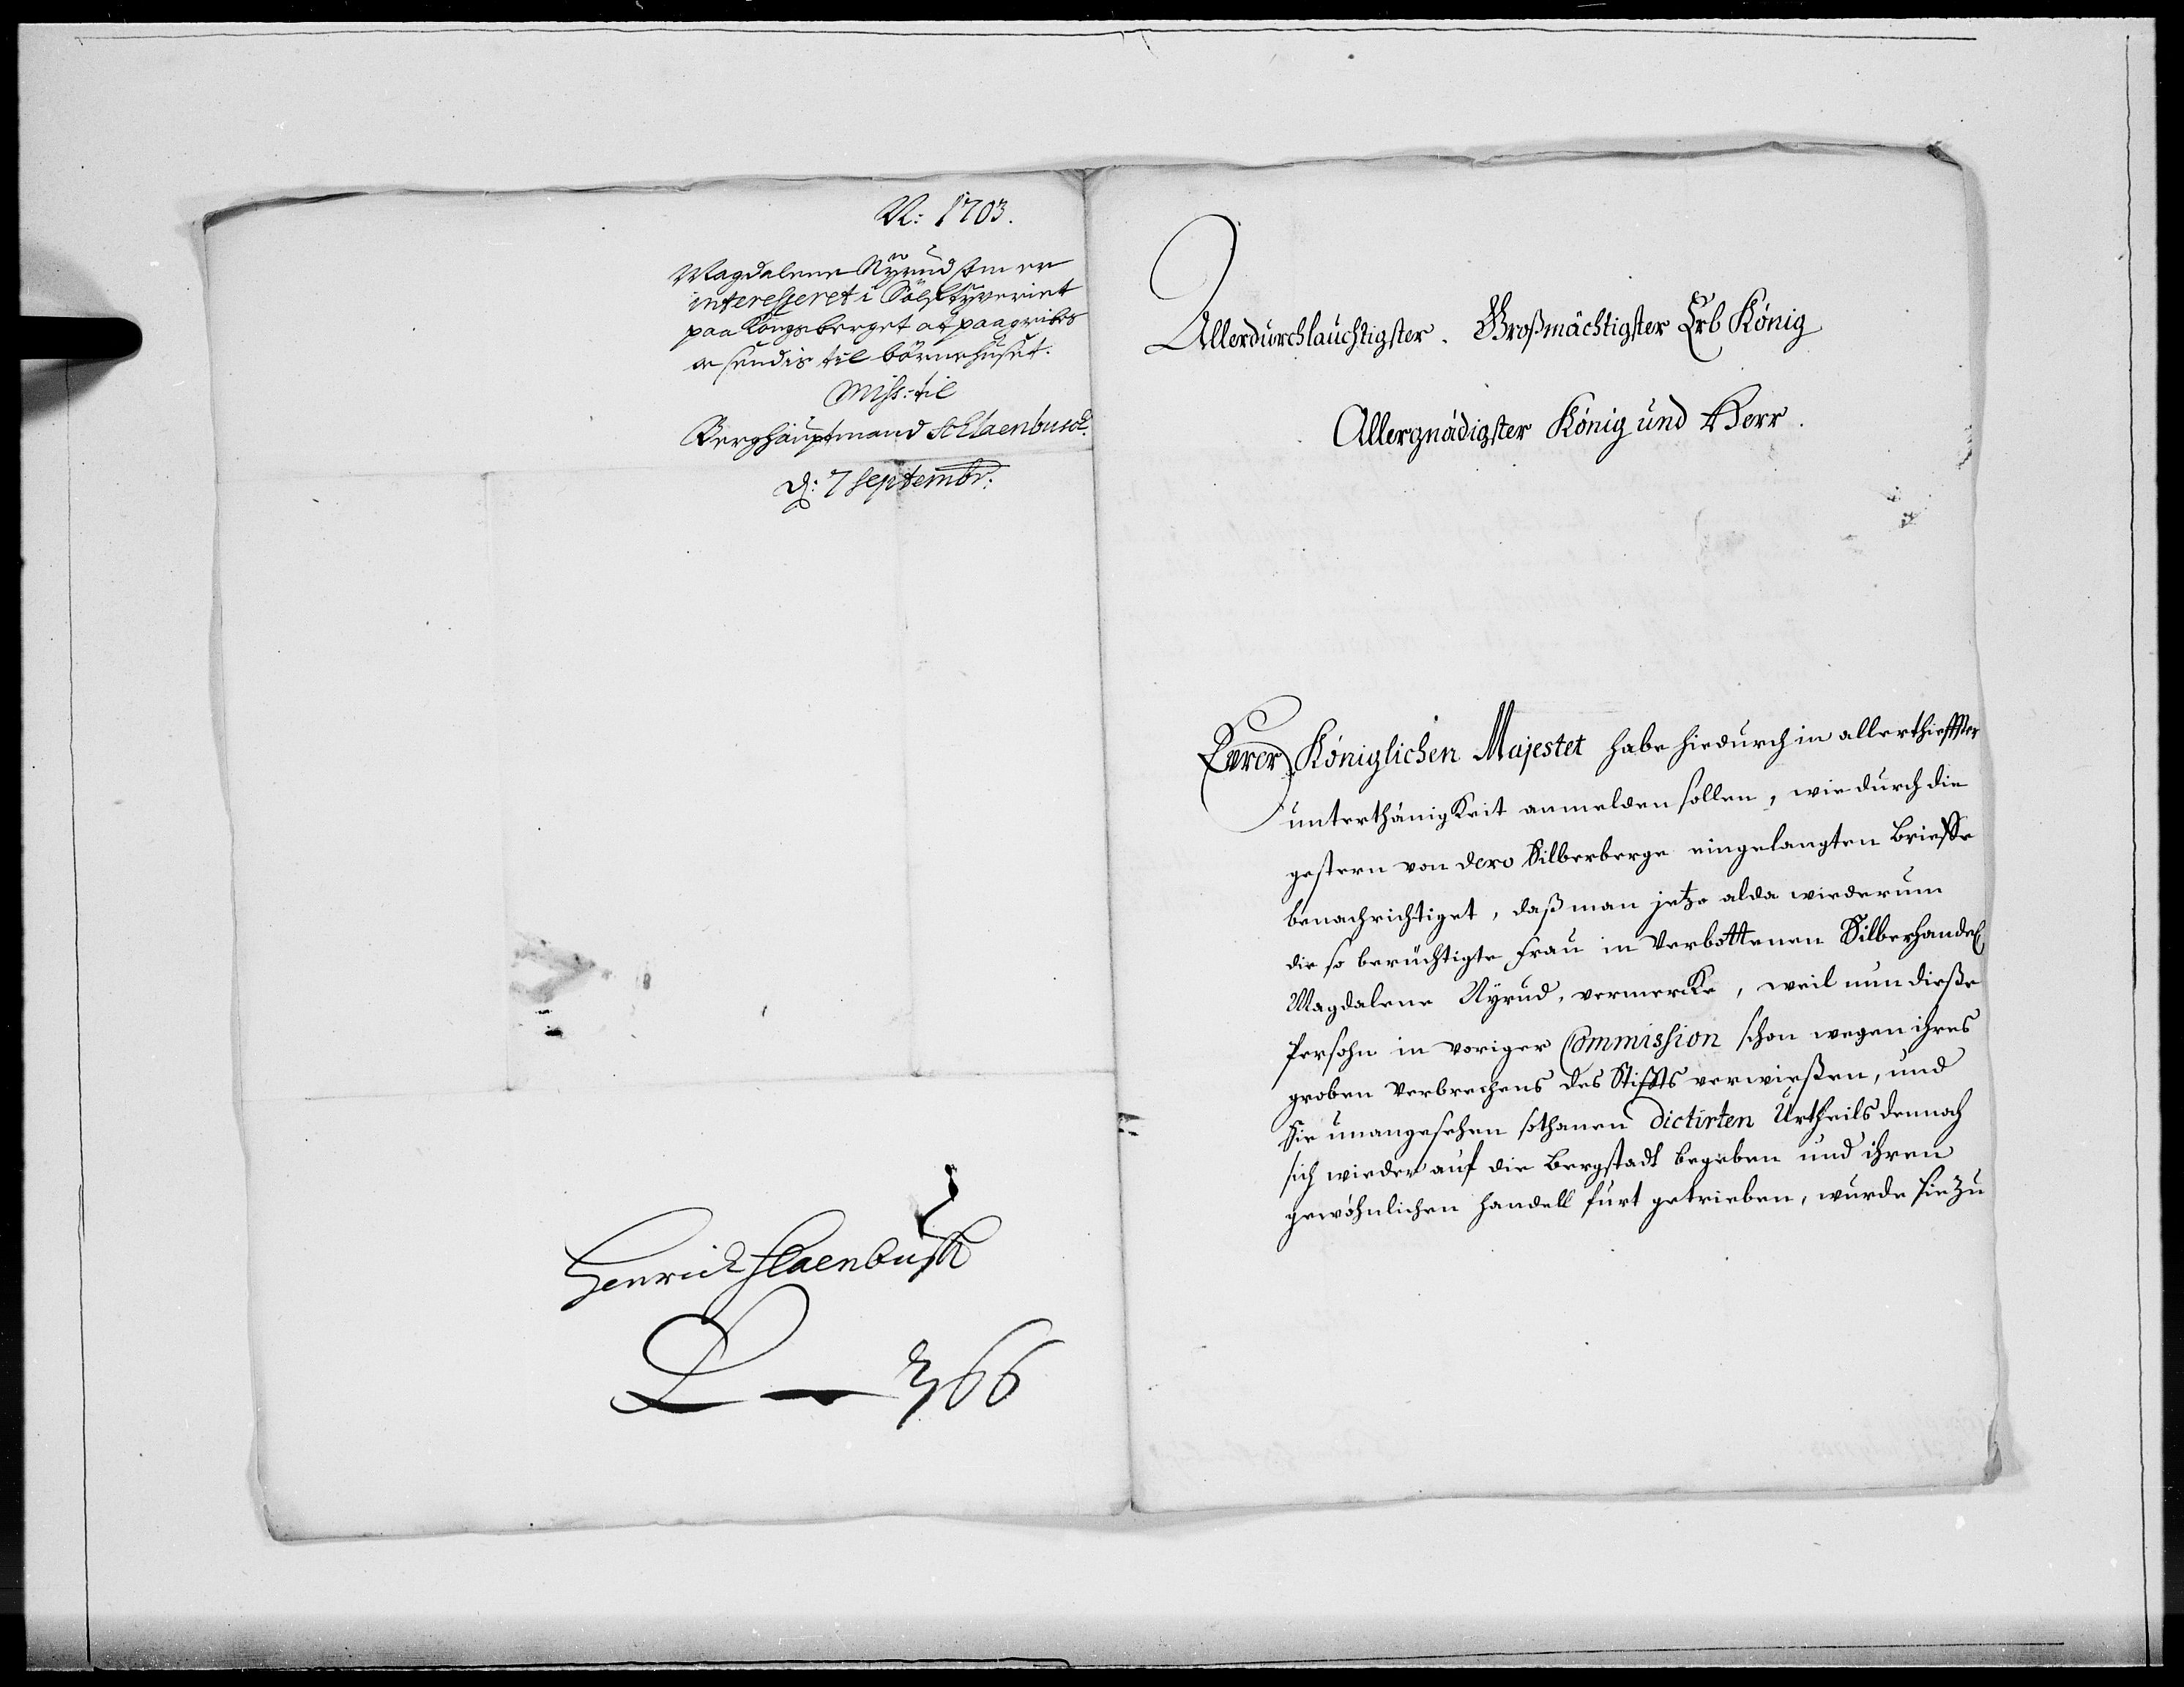 N: 1703.
Magdalene Nÿrud som er
interesseret i Sölftyveriet
paa Kongsberget at paagribes
oc sendis til börnehuset.
Miss: til
Berghauptmand Schlaenbusch.
d: 7 septembr:
Henrich Slaenbusch
L — 366
Allerdurchlauchtigster. Großmächtigster Erb König
Allergnädigster König und Herr.
Eurer Königlichen Majestet habe hiedurch in allerthieffster
unterthänigkeit anmelden sollen, wie durch die
gestern von dero Silberberge eingelangten Brieffe
benachrichtiget, daß man jetzo alda wiederum
die so berüchtigte Frau in verbottenen Silberhandel
Magdalene Nÿrud, vermercke, weil nun dieße
Persohn in voriger Commission schon wegen ihres
groben verbrechens des Stiffts verwießen, und
Sie unangesehen sothanen dictirten Urtheils dennoch
sich wieder auf die Bergstadt begeben und ihren
gewöhnlichen handell fürt getrieben, wurde sie zu